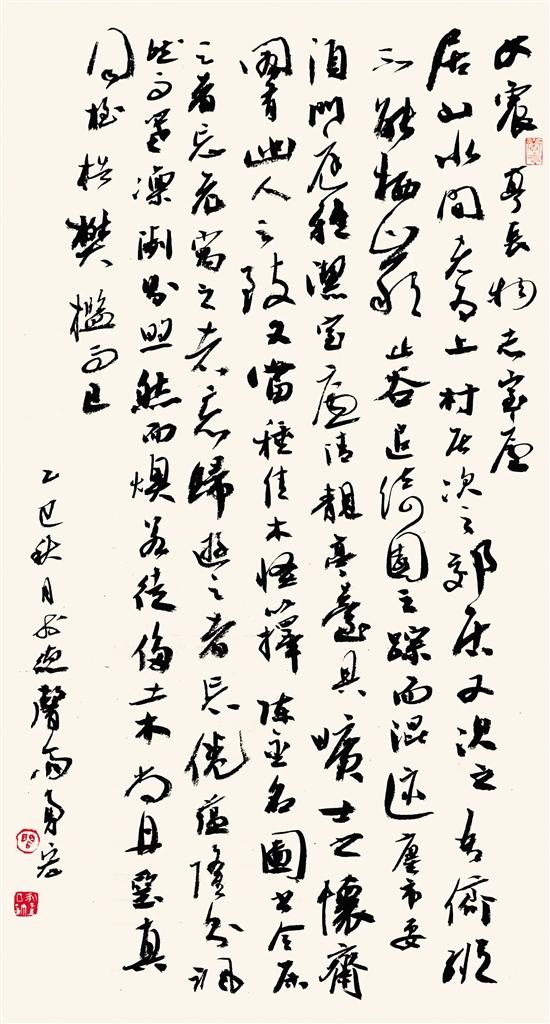 文震亨長物志室廬
居山水間者為上村居次之郊居又次之吾儕縱
不能栖岩止谷追綺園之踪而混迹廛市要
須門庭雅潔室廬清靚亭臺具曠士之懷齋
閣有幽人之致又當種佳木怪籜陳金石圖書令居
之者忘老寓之者忘歸遊之者忘倦蘊隆則颯
然而寒凛冽則煦然而燠若徒侈土木尚丹堊真
同桎梏樊檻而已
乙巳秋月於德馨齋